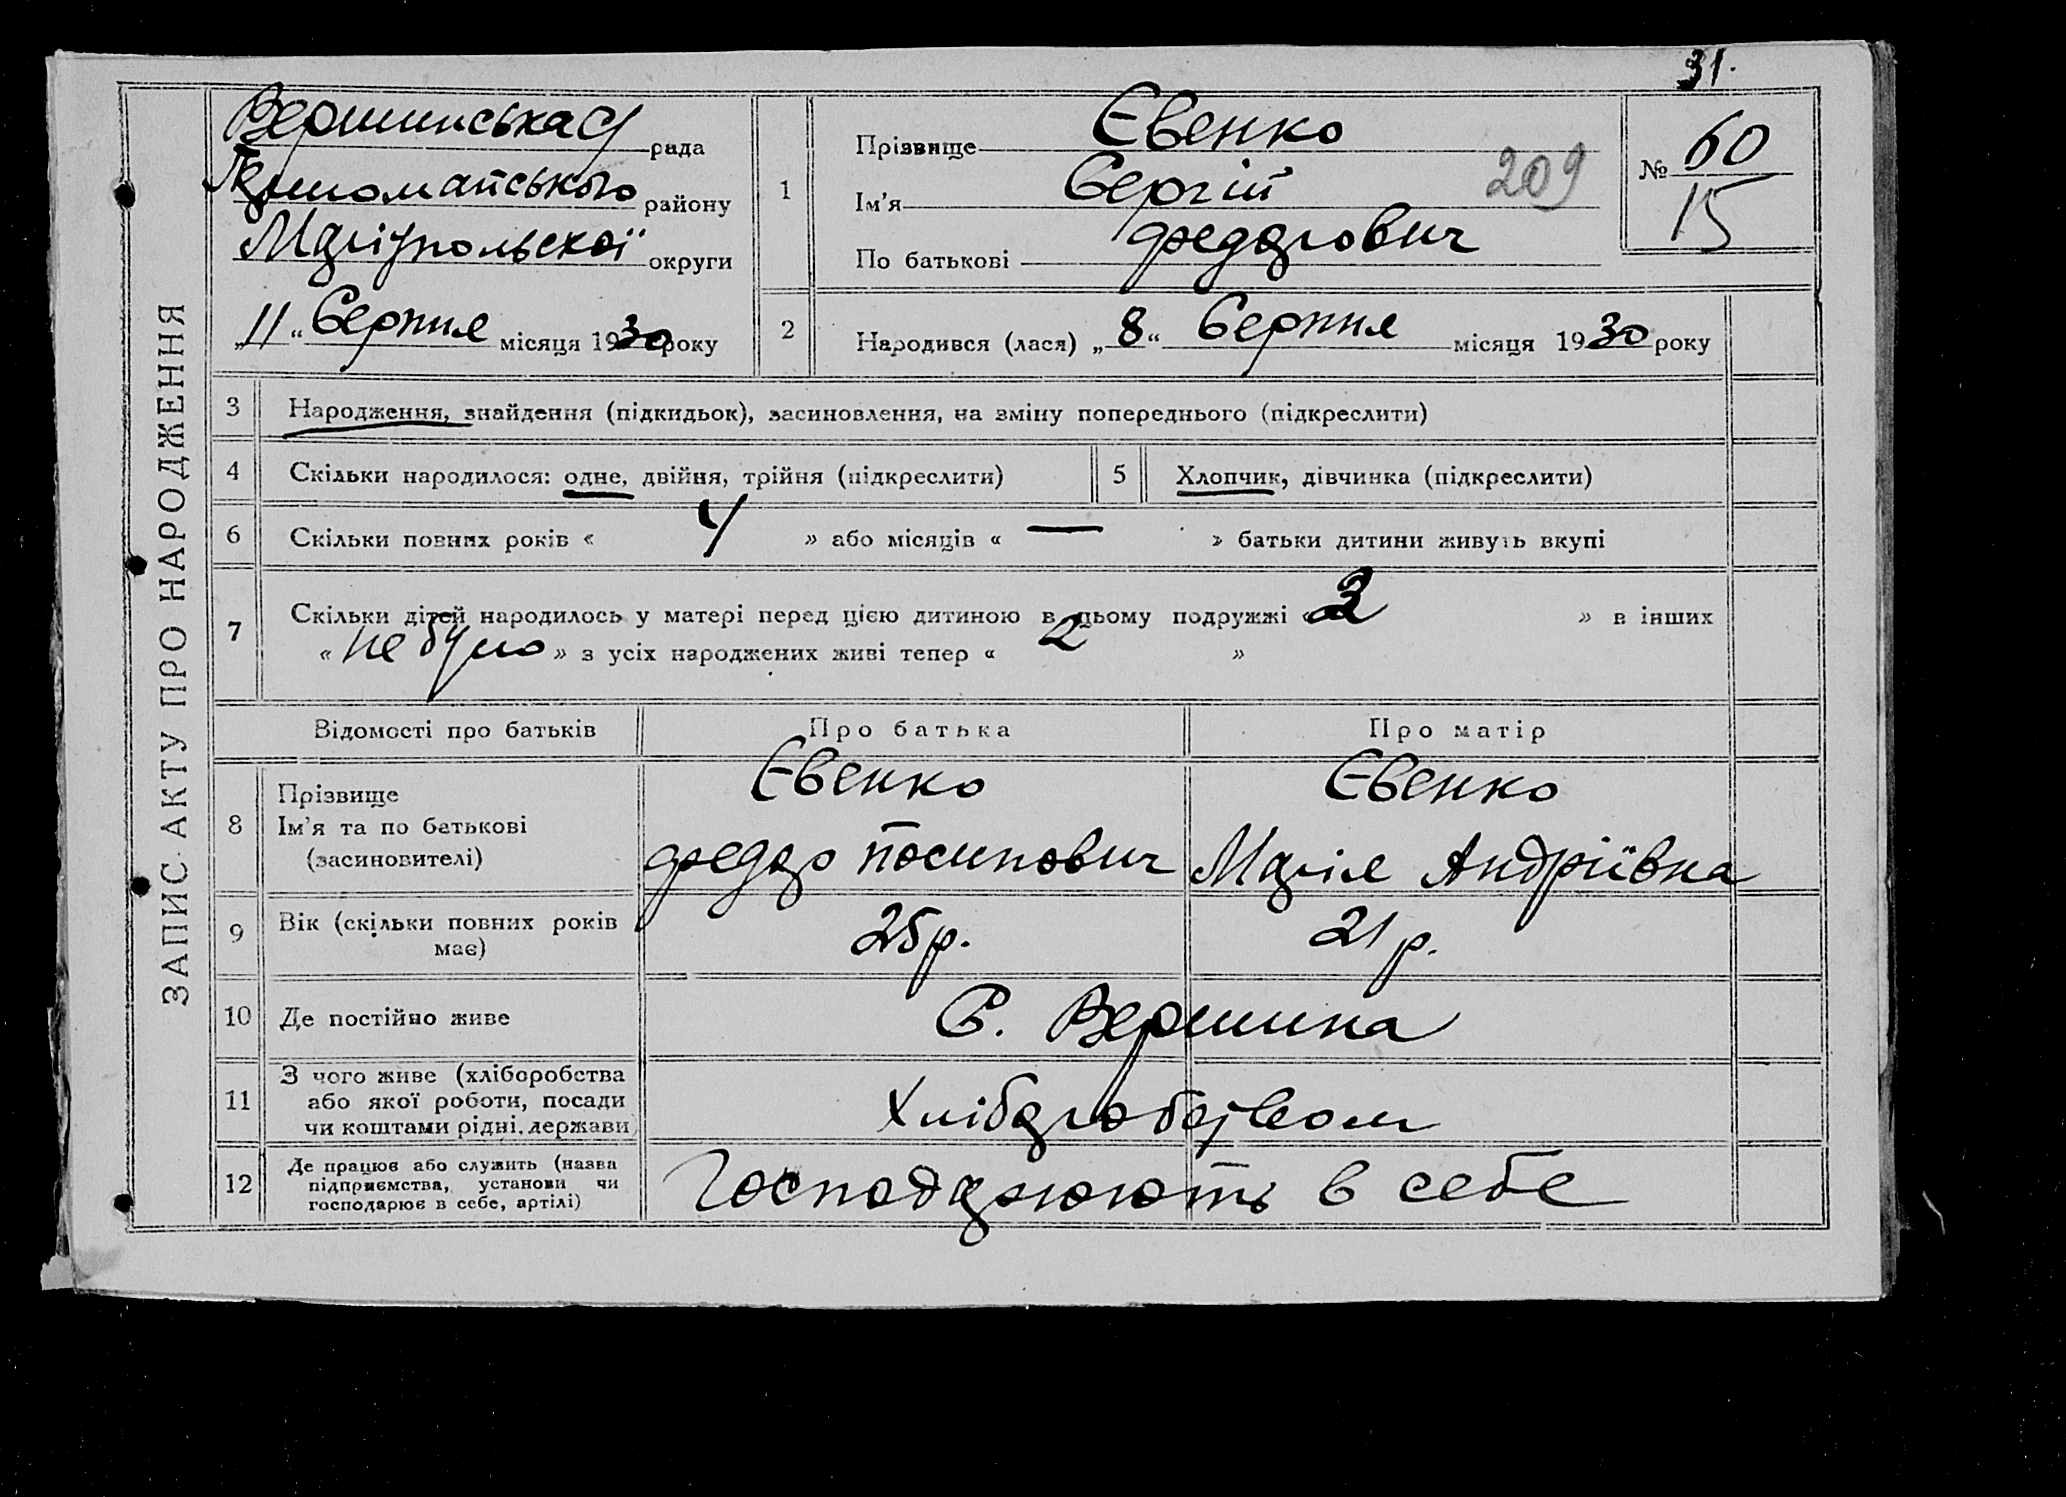 31.
Вершинська с/ рада
Першомайського району
Маріупольскої округи
„11“ Серпня місяця 1930 року
1
Прізвище Євенко
Ім'я Сергій
209
По батькові Федорович
№ 60
15
2
Народився (лася) „8“ Серпня місяця 1930 року
ЗАПИС АКТУ ПРО НАРОДЖЕННЯ
3 Народження, знайдення (підкидьок), засиновлення, на зміну попереднього (підкреслити)
4 Скільки народилося: одне, двійня, трійня (підкреслити)
5 Хлопчик, дівчинка (підкреслити)
6 Скільки повних років « 4 » або місяців « — » батьки дитини живуть вкупі
7 Скільки дітей народилось у матері перед цією дитиною в цьому подружжі « 2 » в інших
« не було » з усіх народжених живі тепер « 2 »
Відомості про батьків
Про батька
Про матір
8 Прізвище
Ім'я та по батькові
(засиновителі)
Євенко
Федор Йосипович
Євенко
Марія Андріївна
9 Вік (скільки повних років
має)
25 р.
21 р.
10 Де постійно живе
С. Вершина
11 З чого живе (хліборобства
або якої роботи, посади
чи коштами рідні, держави)
Хліборобством
12 Де працює або служить (назва
підприємства, установи чи
господарює в себе, артілі)
Господарюють в себе